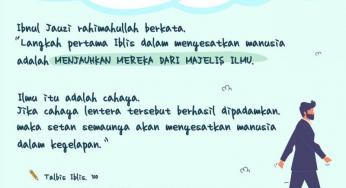 Ibnul Jauzi rahimahullah berkata.
"Langkah pertama Iblis dalam menyesatkan manusia
adalah MENJAUHKAN MEREKA DARI MAJELIS ILMU.
Ilmu itu adalah cahaya.
Jika cahaya lentera tersebut berhasil dipadamkan.
maka setan semaunya akan menyesatkan manusia
dalam kegelapan."
Talbis Iblis.